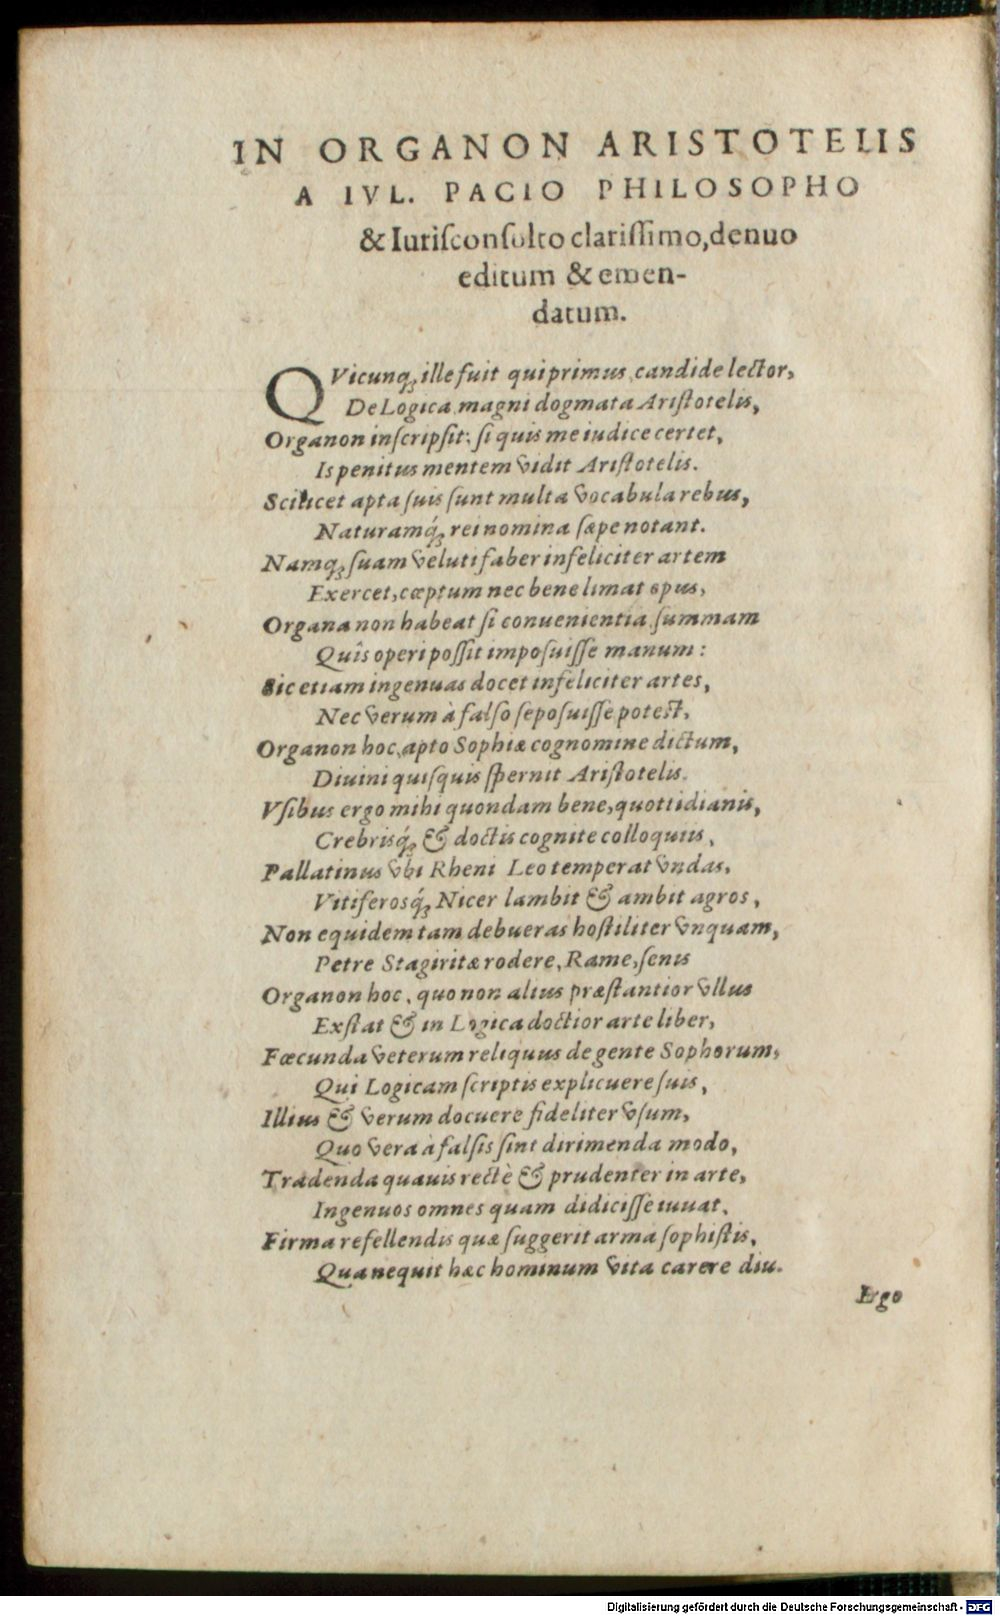 IN ORGANON ARISTOTELIS
A IVL. PACIO PHILOSOPHO
& Iuriſconſulto clariſſimo, denuo
editum & emen-
datum.
QVicunq́ꝫ ille fuit qui primus, candide lector,
De Logica magni dogmata Ariſtotelis,
Organon inſcripſit: ſi quis me iudice certet,
Is penitus mentem vidit Ariſtotelis.
Scilicet apta ſuis ſunt multa vocabula rebus,
Naturamq́ꝫ rei nomina ſæpe notant.
Namqꝫ ſuam veluti faber infeliciter artem
Exercet, cœptum nec bene limat opus,
Organa non habeat ſi conuenientia, ſummam
Quîs operi poſſit impoſuiſſe manum:
Sic etiam ingenuas docet infeliciter artes,
Nec verum à falſo ſepoſuiſſe poteſt,
Organon hoc, apto Sophiæ cognomine dictum,
Diuini quiſquis ſpernit Ariſtotelis.
Vſibus ergo mihi quondam bene, quottidianis,
Crebriſq́ꝫ & doctis cognite colloquiis,
Pallatinus vbi Rheni Leo temperat vndas,
Vitiferosq́ꝫ Nicer lambit & ambit agros,
Non equidem tam debueras hoſtiliter vnquam,
Petre Stagiritæ rodere, Rame, ſenis
Organon hoc, quo non alius præſtantior vllus
Exſtat & in Logica doctior arte liber,
Fœcunda veterum reliquus de gente Sophorum,
Qui Logicam ſcriptis explicuere ſuis,
Illius & verum docuere fideliter vſum,
Quo vera à falſis ſint dirimenda modo,
Tradenda quauis rectè & prudenter in arte,
Ingenuos omnes quam didiciſſe iuuat,
Firma refellendis quæ ſuggerit arma ſophiſtis,
Qua nequit hæc hominum vita carere diu.
Ergo
Digitalisierung gefördert durch die Deutsche Forschungsgemeinschaft - DFG